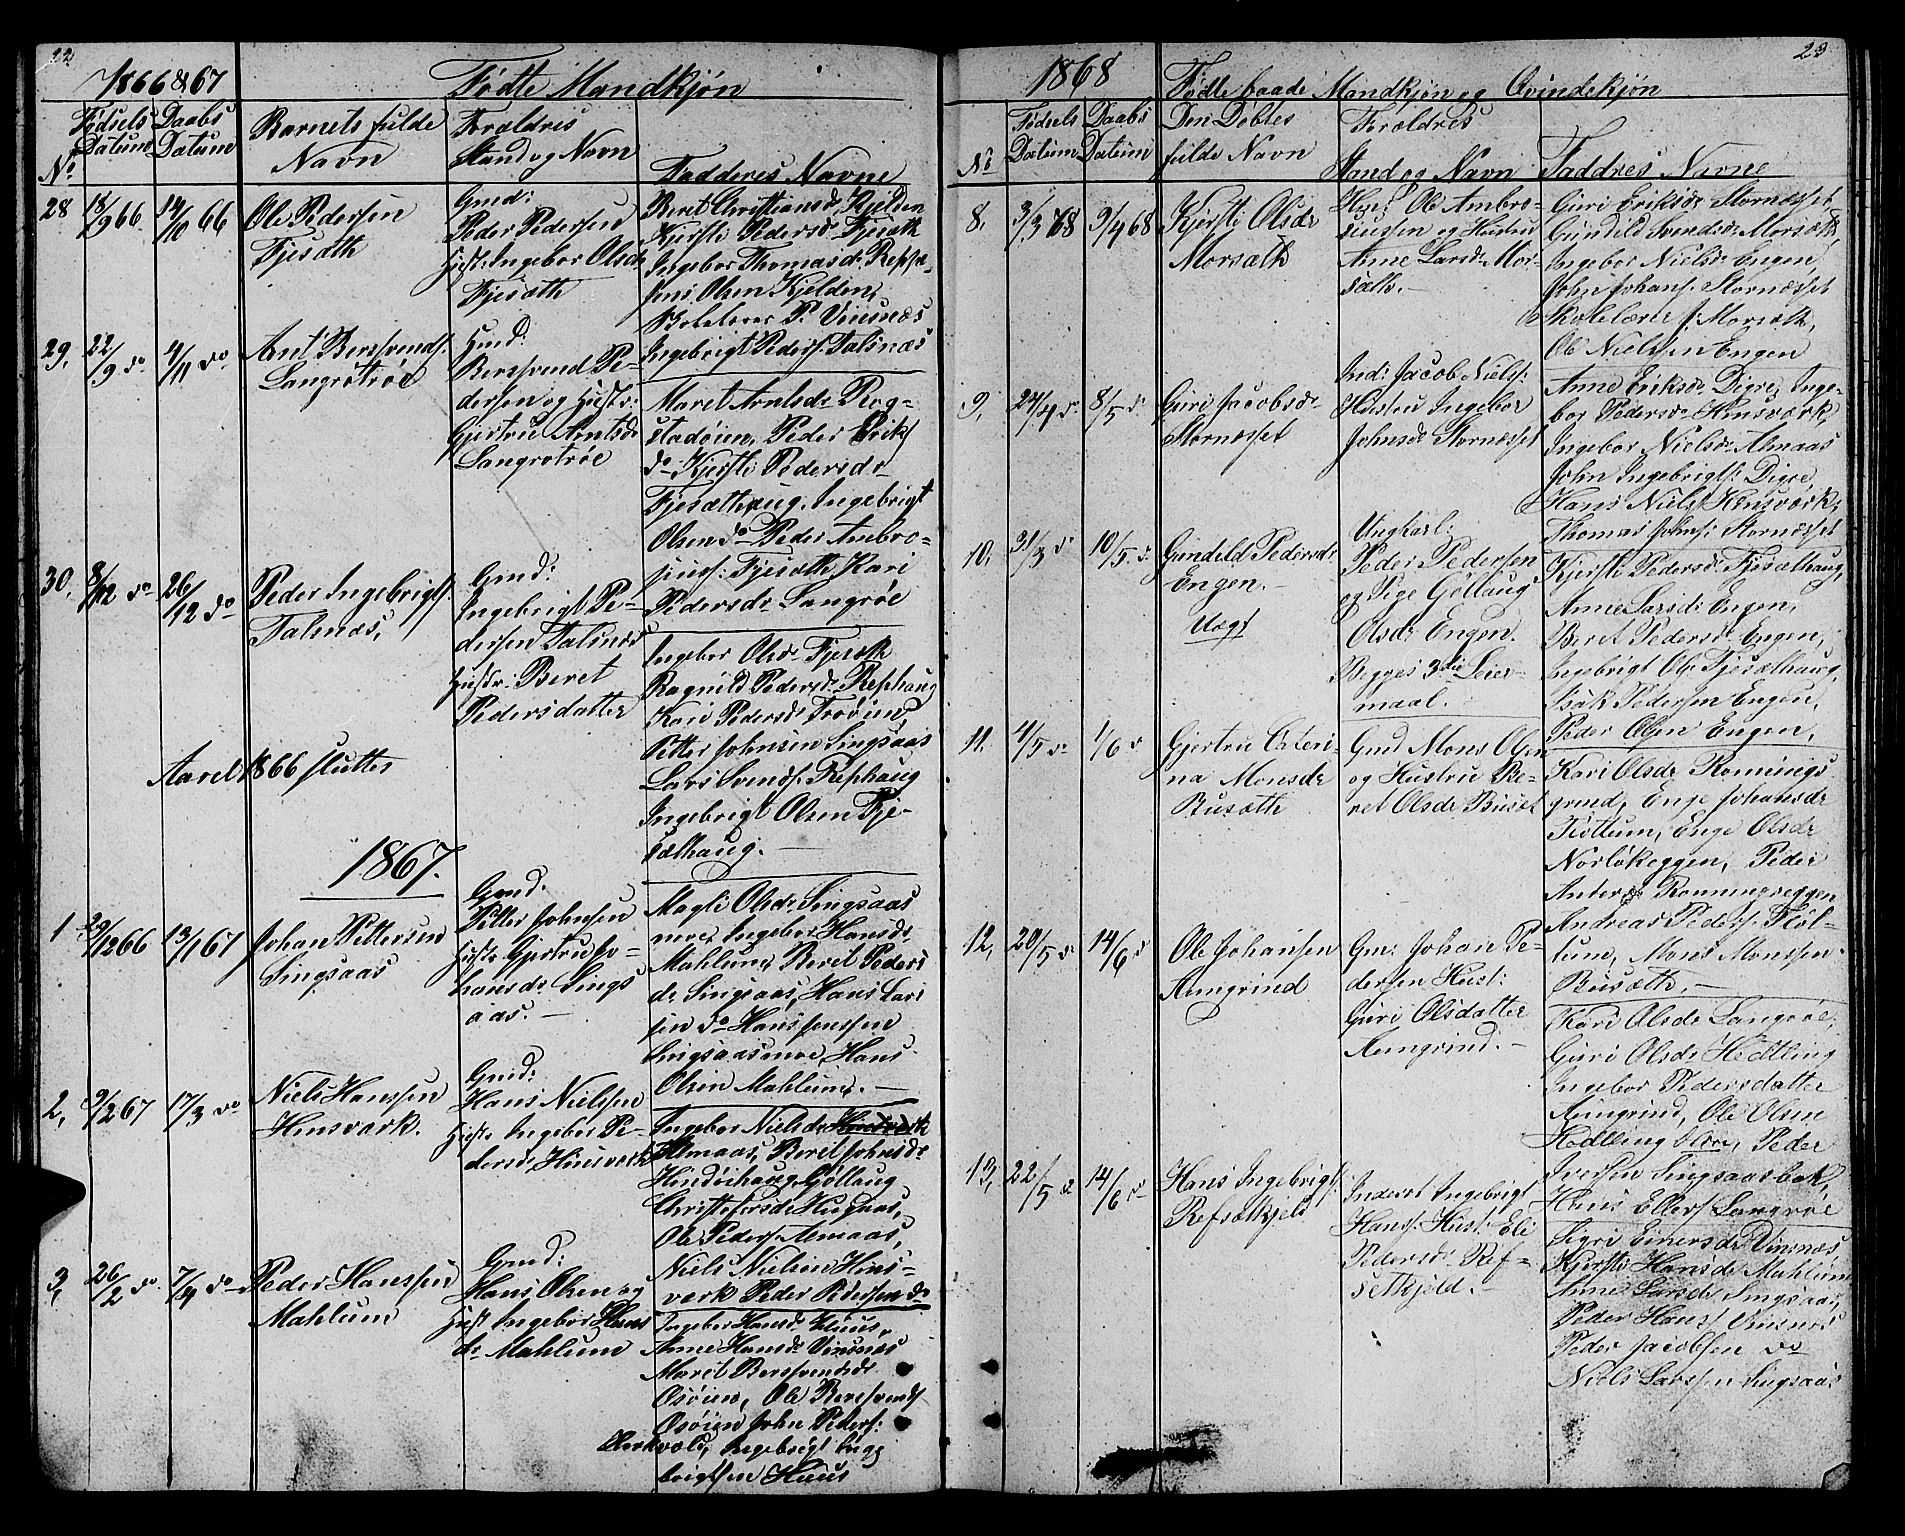 22
1866 & 67
Fødte Mandkjøn
No
Fødsels Datum
Daabs Datum
Barnets fulde Navn
Foraldres Stand og Navn
Fadderes Navne
28 18/9 66. 14/10 66
Ole Pedersen
Fjesæth
Gmd:
Peder Pedersen
Hust: Ingebor Olsdr
Fjesæth
Beret Christiansdr Kjelden
Kjersti Pedersdr Fjesæth
Ingebor Thomasdr
Jens Olsen Kjelden,
P. Vinsnæs
Ingebrigt Peders. Talsnæs
29, 22/9 do 4/11 do
Arnt Berssvends.
Langrøtrøe
Berssvend Pe-
dersen og Hustr:
Gjertru Arntsdr
Langrøtrøe
Maret Arntsdr Rog-
stadøien, Peder Eriks
do Kjersti Pedersdr
Fjesæthaug, Ingebrigt
Olsen do Peder Ambro-
siuss. Fjesæth Kari
Pedersdr Langrøe
30, 8/12 do 26/12 do
Peder Ingebrigts.
Talsnæs,
Gmd:
Ingebrigt Pe-
dersen Talsnæs
Hustr: Beret
Pedersdatter
Ingebor Olsdr Fjesæth
Ragnild Pedersdr Rephaug
Kari Pedersdr Trøøien,
Petter Johnsen Singsaas
Lars Svends. Rephaug
Ingebrigt Olsen Fje-
sæthaug. —
Aaret 1866 slutter
1867.
1 29/12 66 13/1 67
Johan Pettersen
Singsaas
Gmd.
Petter Johnsen
Hustr Gjertru Jo-
hansdr Sings
aas. —
Magli Olsdr Singsaas
moe, Ingebor Hansdr,
Mahlum, Beret Peders
dr Singsaas, Hans Lar
sen do Hans Jenssen
Singsaasmoe, Hans
Olsen Mahlum, —
2, 9/2 67 17/3 do
Niels Hanssen
Hinsværk.
Gmd:
Hans Nielssen
Hustr Ingebor Pe-
dersdr Hinsværk
Ingebor Nielsdr Hinsværk
Almaas, Beret Johnsdr
Hindøihaug, Gøllaug
Christofersdr Hugaas,
Ole Peders. Almaas,
Niels Nielsen Hins-
værk Peder Pedersen do
3, 26/2 do 7/4 do
Peder Hanssen
Mahlum
Gmd:
Hans Olsen og
Hust Ingebor Hans
dr Mahlum
Ingebor Hansdr Huus,
Anne Hansdr Vinsnæs
Maret Berssvendsdr
Osøien, Ole Berssvends
Osøien John Peders:
Ingebrigt Inge
brigtsen Huus
23
1868
Fødte baade Mandkjøn og Qvindekjøn
No
Fødsels Datum
Daabs Datum
Den Døbtes fulde Navn
Forældres Stand og Navn
Faddres Navne
8, 3/3 68 9/4 68
Kjersti Olsdr
Morsæth
Ole Ambro-
siussen og Hustru
Anne Larsdr Mor-
sæth. —
Guri Eriksdr Stornæsset
Gunild Svendsdr Morsæth,
Ingebor Nielsdr Engen,
John Johans. Stornæsset
Skolelærer J. Morsæth,
Ole Nielssen Engen
9, 24/4 do 8/5 do
Guri Jacobsdr
Stornæsset
Ind: Jacob Niels.
Hustru Ingebor
Johnsdr Stornæsset
Anne Eriksdr Digre, Inge-
bor Pedersdr Hinsværk,
Ingebor Nielsdr Almaas
John Ingebrigts. Digre
Hans Niels Hinsværk,
Thomas Johns. Stornæsset
10, 31/3 do 10/5 do
Gundeld Pedersdr
Engen. —
Uægt
Ungkarl:
Peder Pedersen
og Pige Gøllaug
Olsdr Engen.
Begges 3die Leier-
maal.
Kjersti Pedersdr Fjesæthaug,
Anne Larsdr Engen,
Beret Pedersdr Engen,
Ingebrigt Ols. Fjesæthaug,
Isak Pedersen Engen,
Peder Olsen Engen,
11, 4/5 do 1/6 do
Gjertru Oxteri-
na Monsdr
Busæth
Gmd Mons Olsen
og Hustrue Be-
ret Olsdr Buset
Kari Olsdr Rønnings
grind, Enge Johansdr
Fløttum, Enge Olsdr
Norløkeggen, Peder
Anders Rønningseggen
Andreas Peders. Fløt-
tum, Mons Monssen
Busæth. —
12, 20/5 do 14/6 do
Ole Johansen
Aungrind
Gm: Johan Pe-
dersen Hust:
Guri Olsdatter
Aungrind. —
Kari Olsdr Langrøe,
Guri Olsdr Hødtling
Ingebor Pedersdatter
Aungrind, Ole Olsen
Hødtling Peder
Iversen Singsaasbak,
Hans Ellefs. Langrøe
13, 22/5 do 14/6 do
Hans Ingebrigts.
Refsætkjeld
Inderst Ingebrigt
Hans. Hust: Eli
Pedersdr Ref-
setkjeld. —
Sigri Einersdr Vinsnæs,
Kjersti Hansdr Mahlum
Anne Larsdr Singsaas,
Peder Hans. Vinsnæs
Peder Jacobsen do
Niels Larssen Singsaas